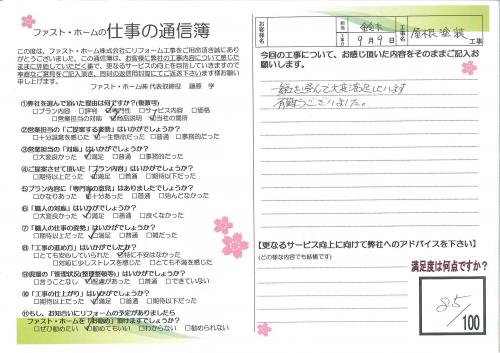 ファスト・ホームの仕事の通信簿
この度は、ファスト・ホーム株式会社にリフォーム工事をご用命頂き誠に
ありがとうございました。この通信簿は、お客様に弊社の工事内容について感じた
ままに評価していただく事で、更なるサービスの向上を目指していきますので
率直なご意見をご記入頂き、同封の返信用封筒にてご返送下さいます様お願い
申し上げます。
ファスト・ホーム㈱ 代表取締役 藤原 学
①弊社を選んで頂いた理由は何ですか?(複数可)
□プラン内容 □評判 □専門性 □サービス内容 □価格
□営業担当の対応 □商品説明 □当社の場所
②営業担当の「ご提案する姿勢」はいかがでしょうか?
□十分誠意を感じた □一生懸命だった □普通 □事務的だった
③営業担当の「対応」はいかがでしょうか?
□大変良かった □満足 □普通 □事務的だった
④ご提案させて頂いた「プラン内容」はいかがでしょうか?
□期待以上だった □満足 □普通 □期待以下だった
⑤プラン内容に「専門家の意見」はありましたでしょうか?
□かなりあった □十分あった □普通 □殆んどなかった
⑥「職人の対応」はいかがでしょうか?
□大変良かった □満足 □普通 □良くなかった
⑦「職人の仕事の姿勢」はいかがでしょうか?
□期待以上だった □満足 □普通 □雑だった
⑧「工事の進め方」はいかがでしたか?
□とても安心していられた □特に不安はなかった
□対応に少しストレスを感じた □とても不満を感じた
⑨現場の「管理状況(整理整頓等)」はいかがでしょうか?
□言うことなし □配慮があった □普通 □できていない
⑩「工事の仕上がり」はいかがでしょうか?
□期待以上だった □満足 □普通 □期待以下だった
⑪もし、お知合いにリフォームの予定がありましたら
ファスト・ホームを「お勧め」頂けますでしょうか?
□ぜひ勧めたい □勧めてもいい □わからない □勧められない
お客様名
担当 鈴木
工事日 9月9日
工事名 屋根塗装 工事
今回の工事について、お感じ頂いた内容をそのままご記入お
願いします。
有難うございました。
【更なるサービス向上に向けて弊社へのアドバイスを下さい】
(どの様な内容でも結構です)
満足度は何点ですか?
85
/100